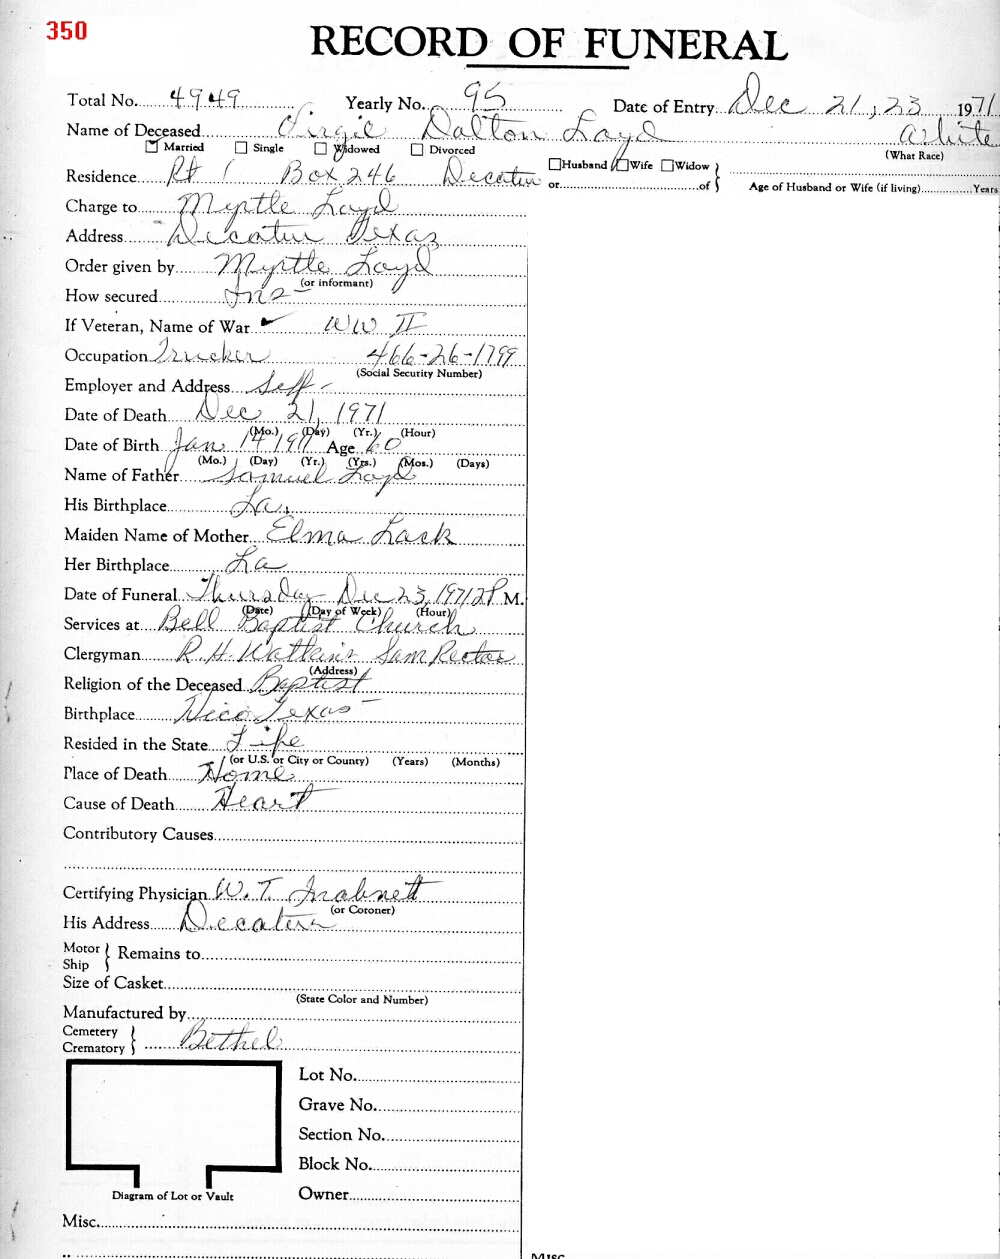 350
RECORD OF FUNERAL
Total No. 4949 Yearly No. 95 Date of Entry Dec 21, 23 1971
Name of Deceased Virgil Dalton Loyd White
Married Single Widowed Divorced (What Race)
Residence Rt 1 Box 246 Decatur or Husband Wife Widow of Age of Husband or Wife (if living) Years
Charge to Myrtle Loyd
Address Decatur Texas
Order given by Myrtle Loyd
(or informant)
How secured Ins
If Veteran, Name of War WW II
Occupation Trucker 466-26-1799
(Social Security Number)
Employer and Address Self
Date of Death Dec 21, 1971
(Mo.) (Day) (Yr.) (Hour)
Date of Birth Jan 14 1911 Age 60
(Mo.) (Day) (Yr.) (Yrs.) (Mos.) (Days)
Name of Father Samuel Loyd
His Birthplace La.
Maiden Name of Mother Elma Lask
Her Birthplace La
Date of Funeral Thursday Dec 23, 1971 2 P M.
(Date) (Day of Week) (Hour)
Services at Bell Baptist Church
Clergyman R.H. Watkins Sam Rector
(Address)
Religion of the Deceased Baptist
Birthplace Texas
Resided in the State Life
(or U.S. or City or County) (Years) (Months)
Place of Death Home
Cause of Death Heart
Contributory Causes
Certifying Physician W. T.
(or Coroner)
His Address Decatur
Motor Ship Remains to
Size of Casket
(State Color and Number)
Manufactured by
Cemetery Crematory Bethel
Lot No.
Grave No.
Section No.
Block No.
Owner
Diagram of Lot or Vault
Misc.